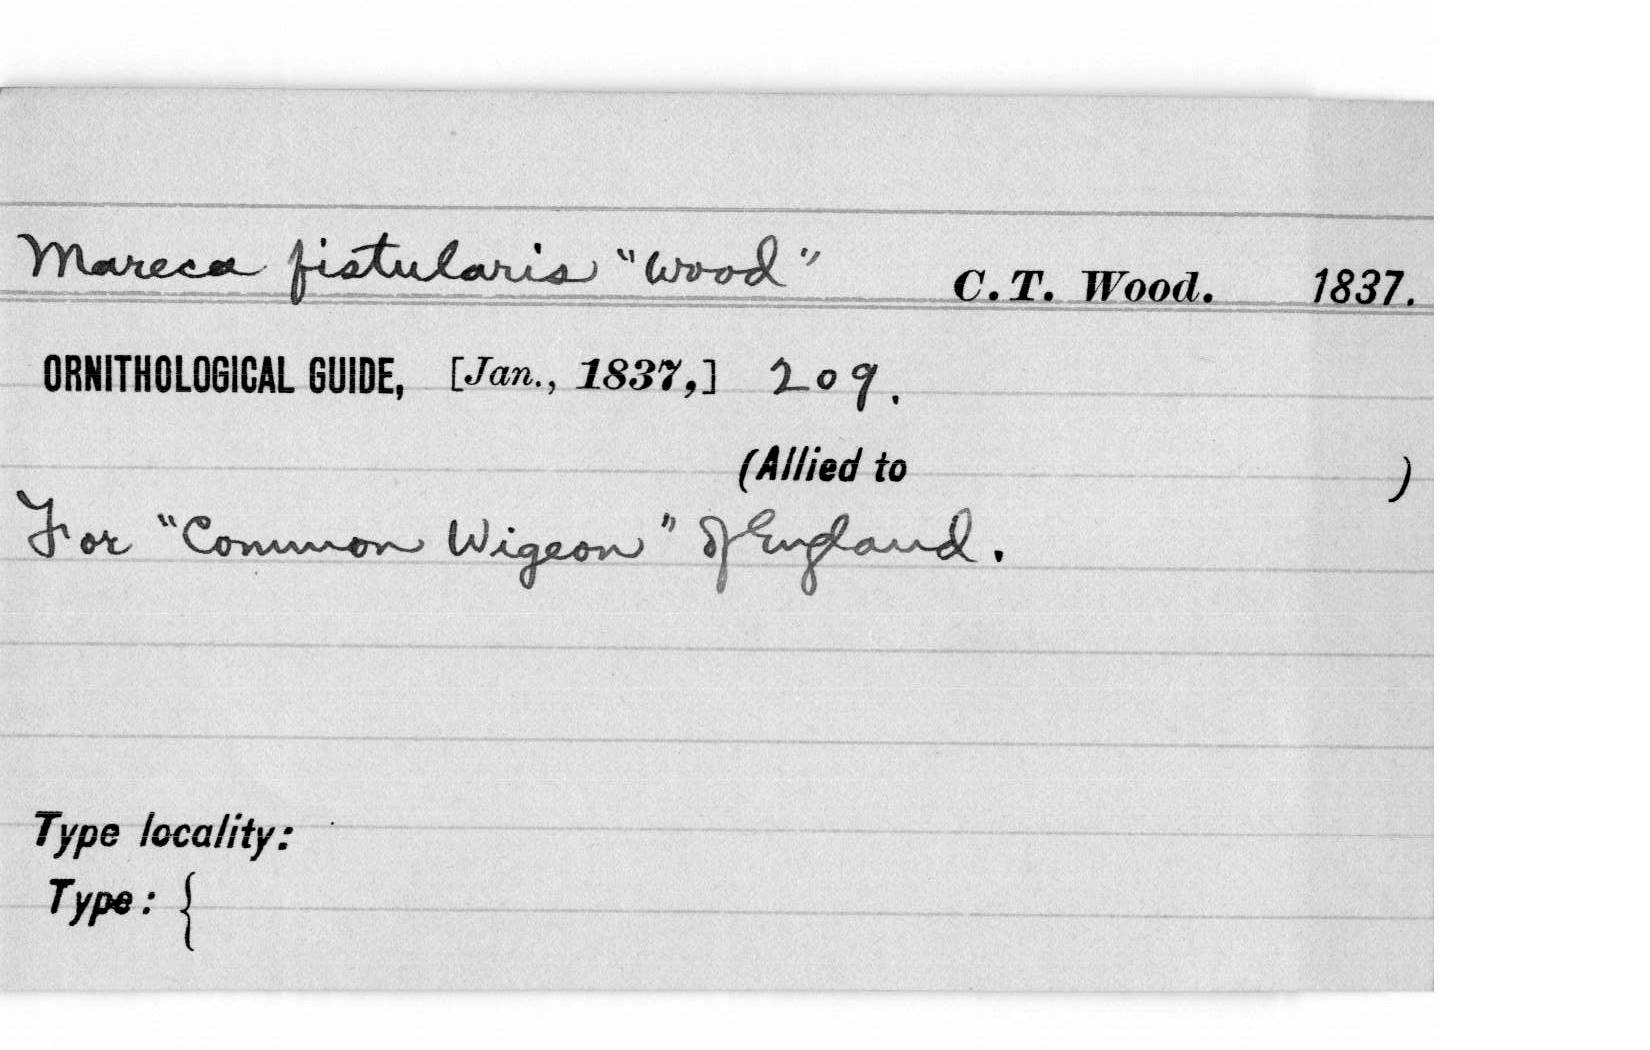 Mareca fistularis "Wood" C. T. Wood. 1837.
ORNITHOLOGICAL GUIDE, [Jan., 1837,] 209.
(Allied to )
For "Common Wigeon" of England.
Type locality:
Type: {